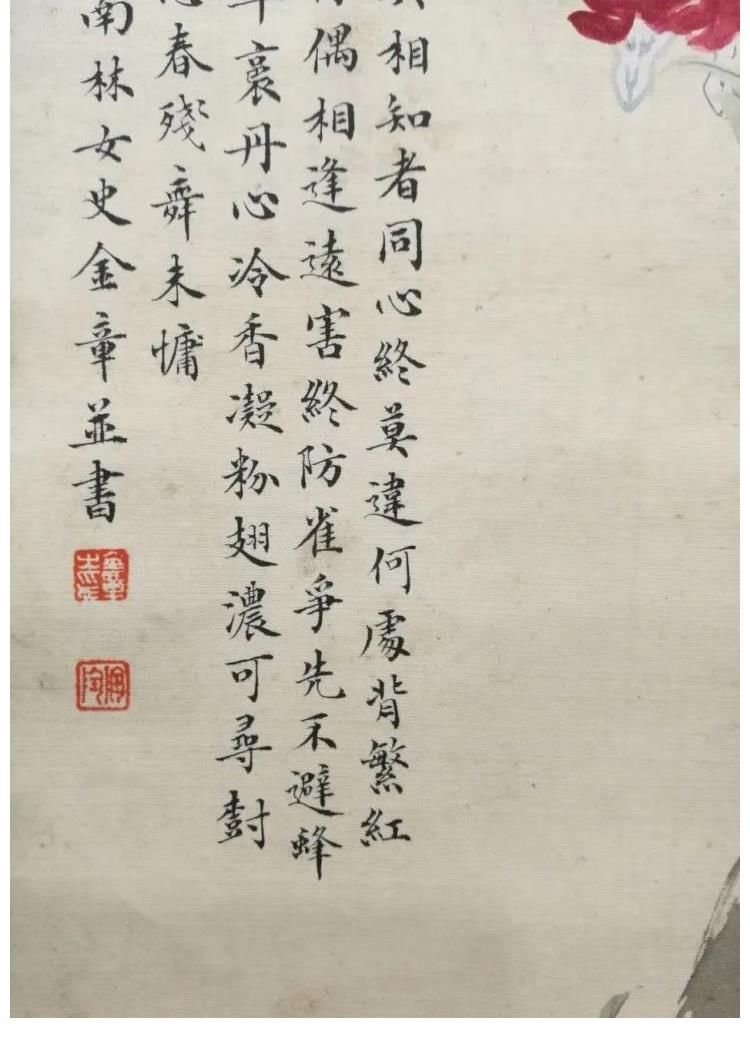 相知者同心終莫違何處背繁紅
偶相逢遠害終防雀爭先不避蜂
裛丹心冷香凝粉翅濃可尋
春殘舞未慵
南林女史金章並書